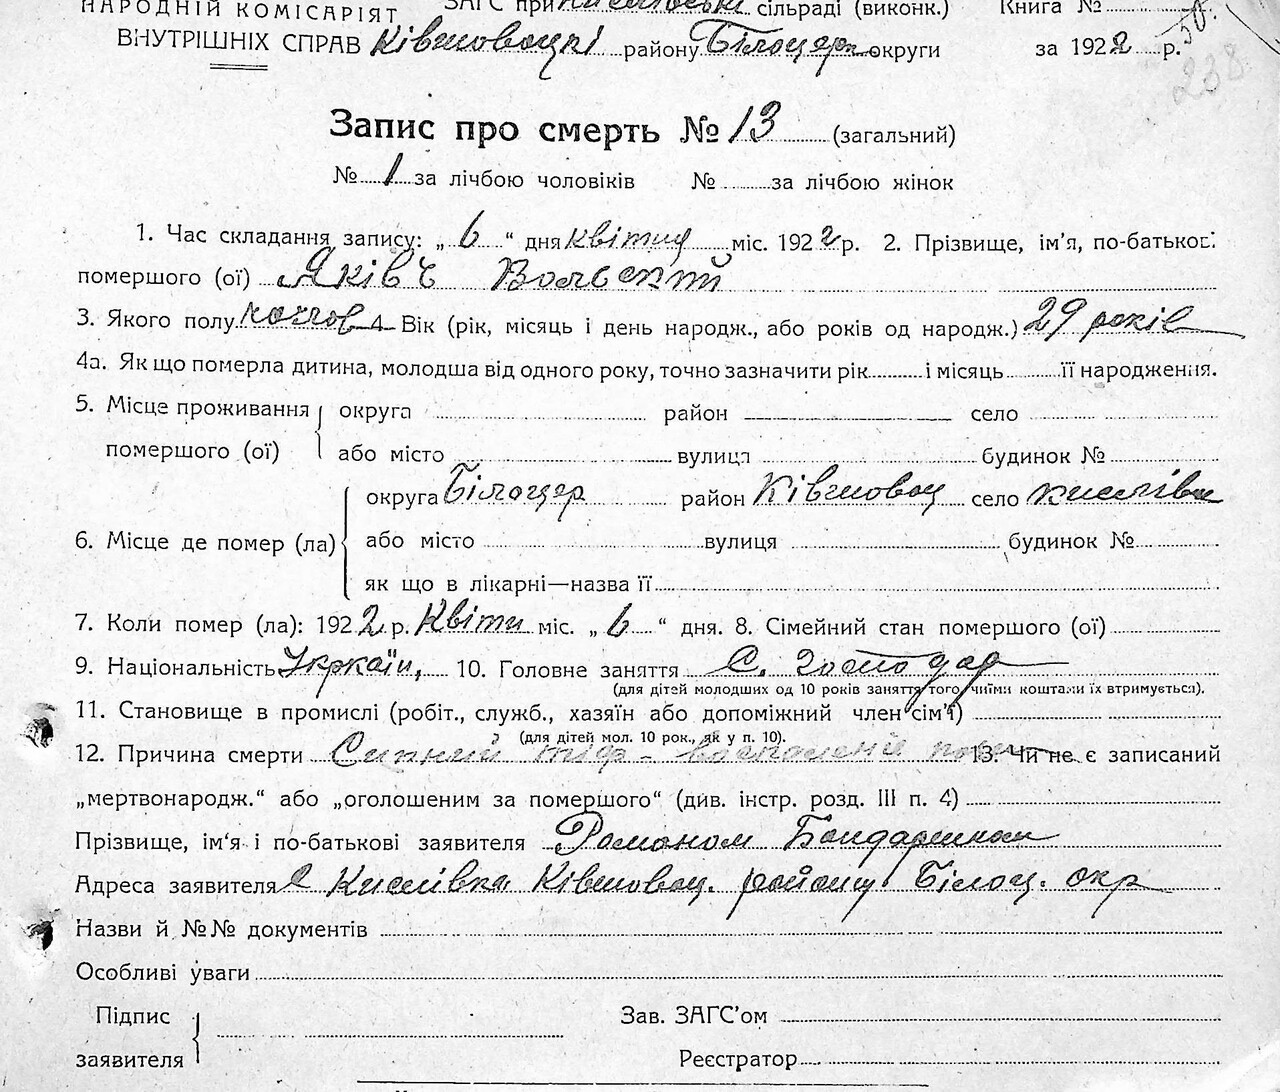 НАРОДНІЙ КОМІСАРІЯТ ЗАГС при Кислівські сільраді (виконк.) Книга №
ВНУТРІШНІХ СПРАВ Ківшовацкі району Білоцерк округи за 1922 р.
238
Запис про смерть № 13 (загальний)
№ 1 за лічбою чоловіків № за лічбою жінок
1. Час складання запису: „ 6 “ дня квітня міс. 1922 р. 2. Прізвище, ім’я, по-батькові
помершого (ої) Яківъ Вольский
3. Якого полу 4. Вік (рік, місяць і день народж., або років од народж.) 29 років
4а. Як що померла дитина, молодша від одного року, точно зазначити рік і місяць її народження.
5. Місце проживання помершого (ої) округа район село
або місто вулиця будинок №
6. Місце де помер (ла) округа Білоцер район Ківшовац село Кислівка
або місто вулиця будинок №
як що в лікарні—назва її
7. Коли помер (ла): 1922 р. Квітн міс. „ 6 “ дня. 8. Сімейний стан помершого (ої)
9. Національність Украаїн, 10. Головне заняття С. господар
(для дітей молодших од 10 років заняття того, чиїми коштами їх втримується).
11. Становище в промислі (робіт., служб., хазяїн або допоміжний член сім’ї)
(для дітей мол. 10 рок., як у п. 10).
12. Причина смерти Сипний тіф - воспаленіе 13. Чи не є записаний
„мертвонародж.“ або „оголошеним за помершого“ (див. інстр. розд. III п. 4)
Прізвище, ім‘я і по-батькові заявителя Романом Бондаренком
Адреса заявителя с Кислівка Ківшовац. району Білоц. окр
Назви й №№ документів
Особливі уваги
Підпис заявителя Зав. ЗАГС’ом
Реєстратор